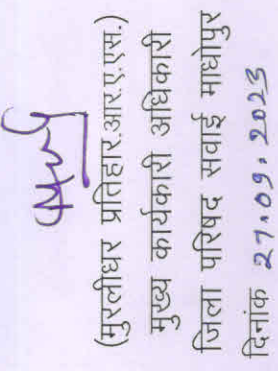 (मुरलीधर प्रतिहार.आर.ए.एस.)
मुख्य कार्यकारी अधिकारी
जिला परिषद सवाई माधोपुर
दिनांक 27.09.2023